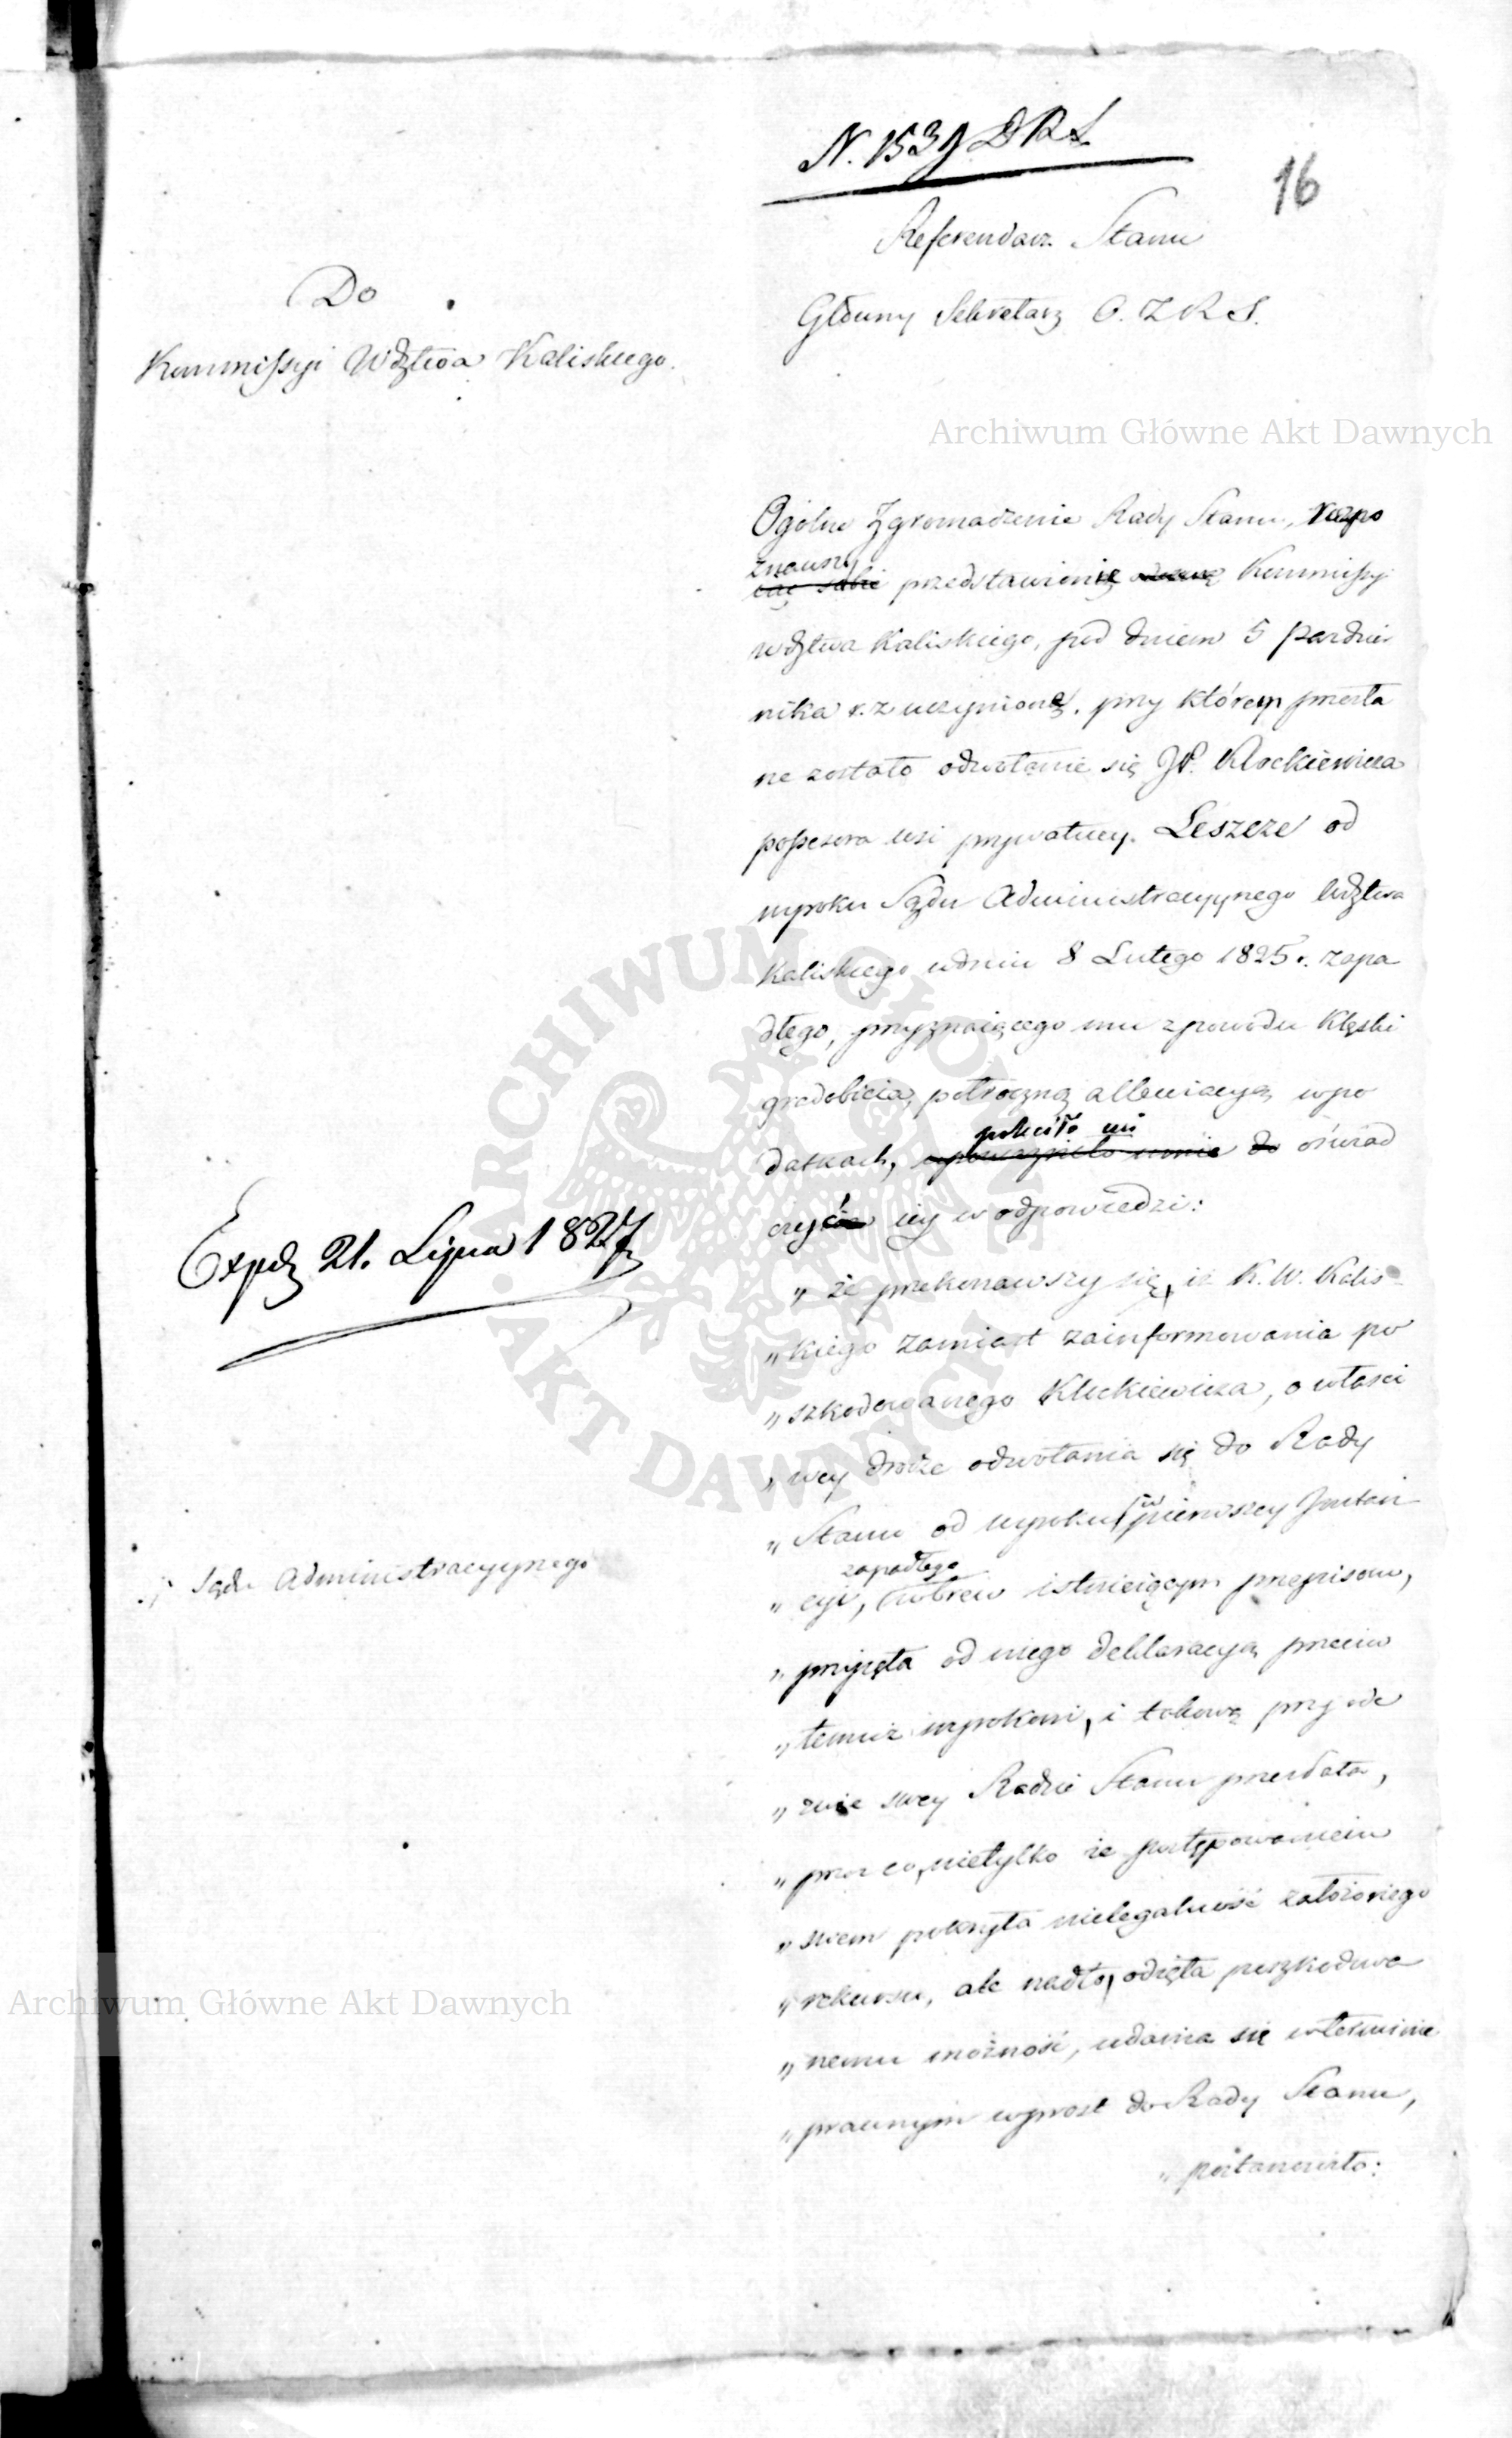 N. 1539 DRS
16
Referendarz Stanu
Główny Sekretarz O. Z R S.
Do
Kommissyi Wdztwa Kaliskiego.
Archiwum Główne Akt Dawnych
Ogólne Zgromadzenie Rady Stanu, rozpo
znawszy
przedstawienie Kommissyi
Wdztwa Kaliskiego, pod dniem 5 Paździer
nika r. z uczynione, przy którem przesła
ne zostało odwołanie się JP. Kluckiewicza
possesora wsi prywatney Leszcze od
wyroku Sądu Administracyynego Wdztwa
Kaliskiego w dniu 8 Lutego 1825 r. zapa
dłego, przyznaiącego mu z powodu klęski
gradobicia, półroczną allewiacyą w po
poleciło mi
datkach, upoważniło mnie do oświad
czyć iey w odpowiedzi:
„ że przekonawszy się, iż K. W. Kalis-
„ kiego zamiast zainformowania po
„ szkodowanego Kluckiewicza, o właści
„ wey drodze odwołania się do Rady
„ Stanu od wyroku w pierwszey Instan
zapadłego
„ cyi, wbrew istnieiącym przepisom,
„ przyięła od niego deklaracyą przeciw
„ temuż wyrokowi, i takową przy ode
„ zwie swey Radzie Stanu przesłała,
„ przez co, nietylko że postępowaniem
„ swem pokryła nielegalność założonego
„ rekursu, ale nadto, odięła poszkodowa
„ nemu możność, udania się w terminie
„ prawnym wprost do Rady Stanu,
„ postanowiło:
Expdz 21. Lipca 1827
Sądu Administracyynego
Archiwum Główne Akt Dawnych
ARCHIWUM GŁÓWNE
AKT DAWNYCH